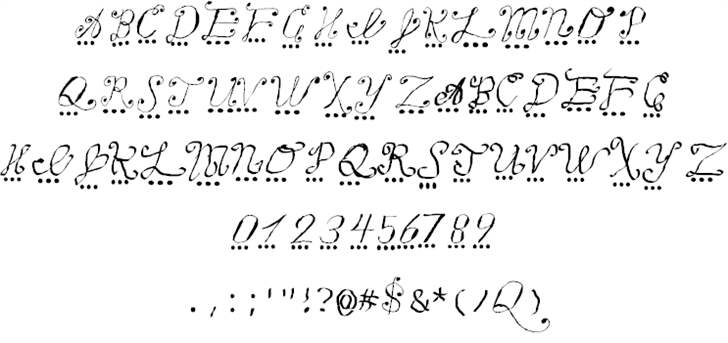 ABCDEFGHIJKLMNOP
QRSTUVWXYZABCDEFG
HIJKLMNOPQRSTUVWXYZ
0123456789
.,:;'"!?@#$&*(/Q)